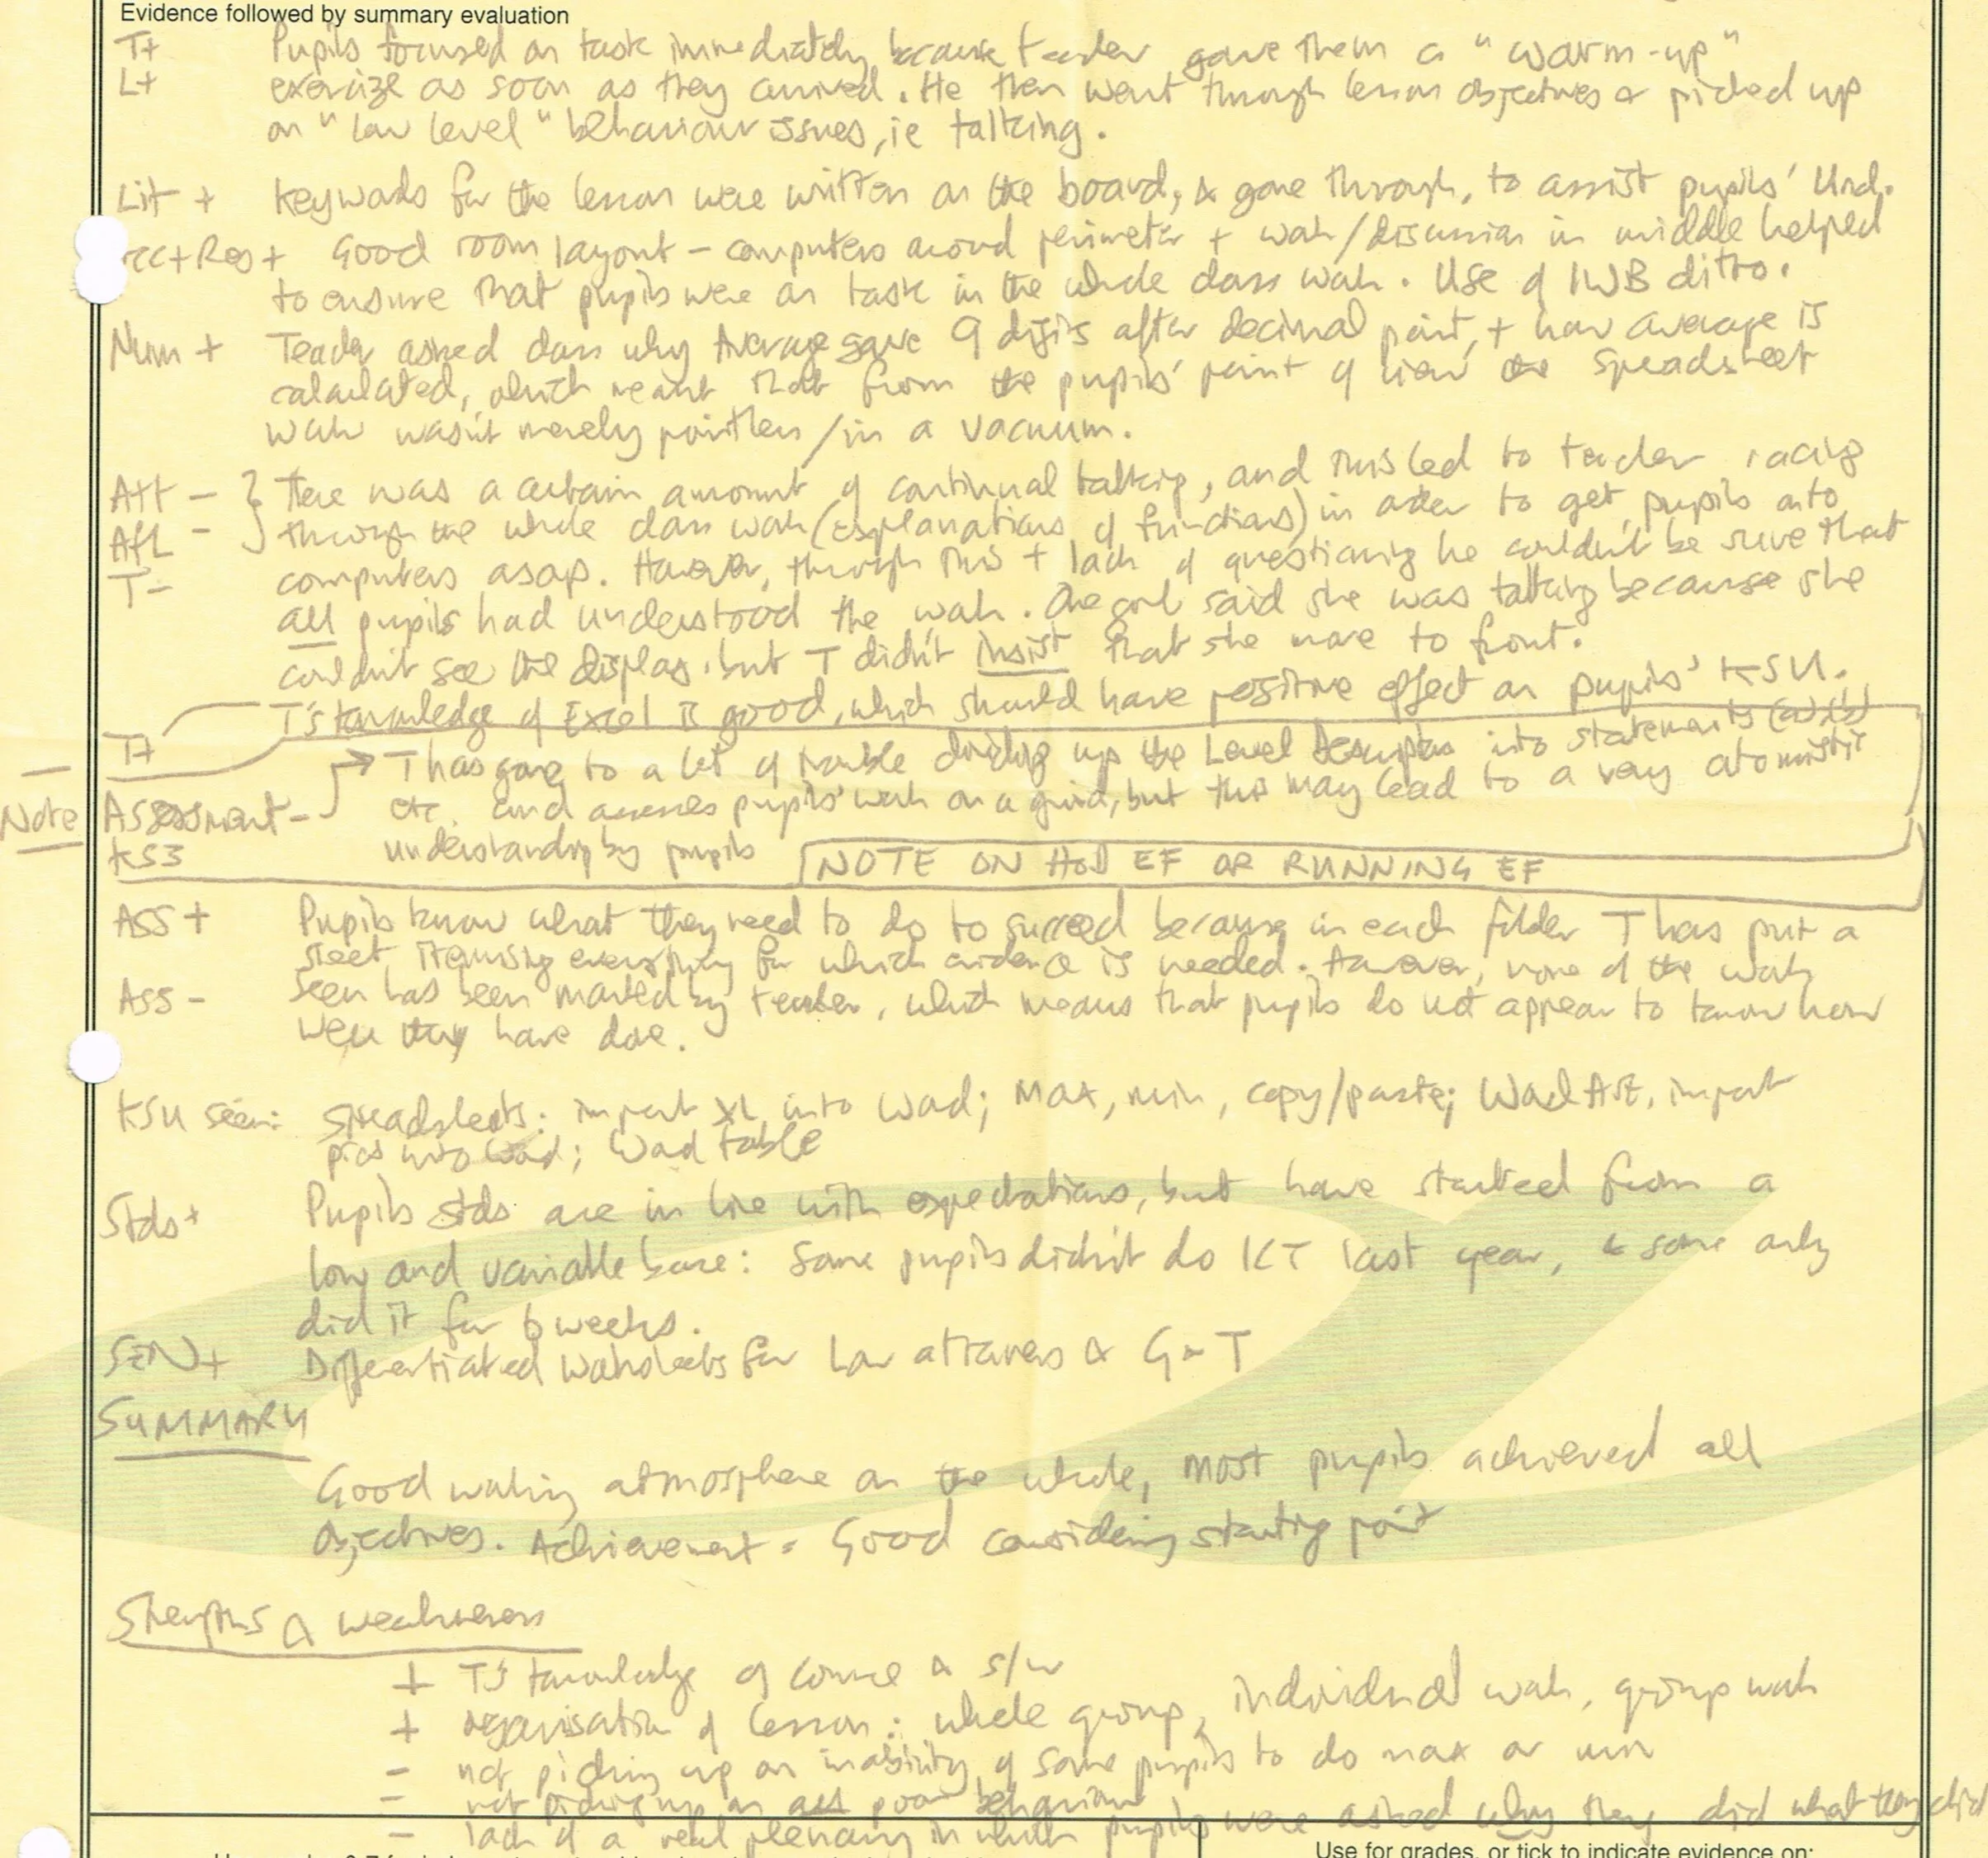 Evidence followed by summary evaluation
T+ Pupils focused on task immediately because teacher gave them a "warm-up"
L+ exercize as soon as they arrived. He then went through lesson objectives & picked up
on "low level" behaviour issues, ie talking.
Lit + Keywords for the lesson were written on the board, & gone through, to assist pupils' Und.
cc+Res+ Good room layout – computers around perimeter + work/discussion in middle helped
to ensure that pupils were on task in the whole class work. Use of IWB ditto.
Num + Teacher asked class why Average gave 9 digits after decimal point, + how average is
calculated, which meant that from the pupils' point of view the spreadsheet
work wasn't merely pointless/in a vacuum.
Att – } There was a certain amount of continual talking, and this led to teacher racing
AfL – through the whole class work (explanations of functions) in order to get pupils onto
T – computers asap. However, through this + lack of questioning he couldn't be sure that
all pupils had understood the work. One girl said she was talking because she
couldn't see the display, but T didn't insist that she move to front.
T's knowledge of Excel is good, which should have positive effect on pupils' KSU.
T+ → T has gone to a lot of trouble dividing up the Level Descriptors into statements (a)(b)
Note Assessment – etc. and assesses pupils' work on a grid, but this may lead to a very atomistic
KS3 understanding by pupils NOTE ON HOD EF OR RUNNING EF
ASS + Pupils know what they need to do to succeed because in each folder T has put a
sheet itemising everything for which evidence is needed. However, none of the work
ASS – seen has been marked by teacher, which means that pupils do not appear to know how
well they have done.
KSU seen: Spreadsheets: import XL into Word; Max, min, copy/paste; WordArt, import
pics into Word; Word table
Stds+ Pupils stds are in line with expectations, but have started from a
low and variable base: Some pupils didn't do ICT last year, & some only
did it for 6 weeks.
SEN+ Differentiated worksheets for Low attainers & G&T
SUMMARY
Good working atmosphere on the whole, most pupils achieved all
objectives. Achievement = Good considering starting point
Strengths & weaknesses
+ T's knowledge of course & s/w
+ organisation of lesson: whole group, individual work, group work
– not picking up on inability of some pupils to do max or min
– not picking up on all poor behaviour
– lack of a real plenary in which pupils were asked why they did what they did
Use for grades, or tick to indicate evidence on: